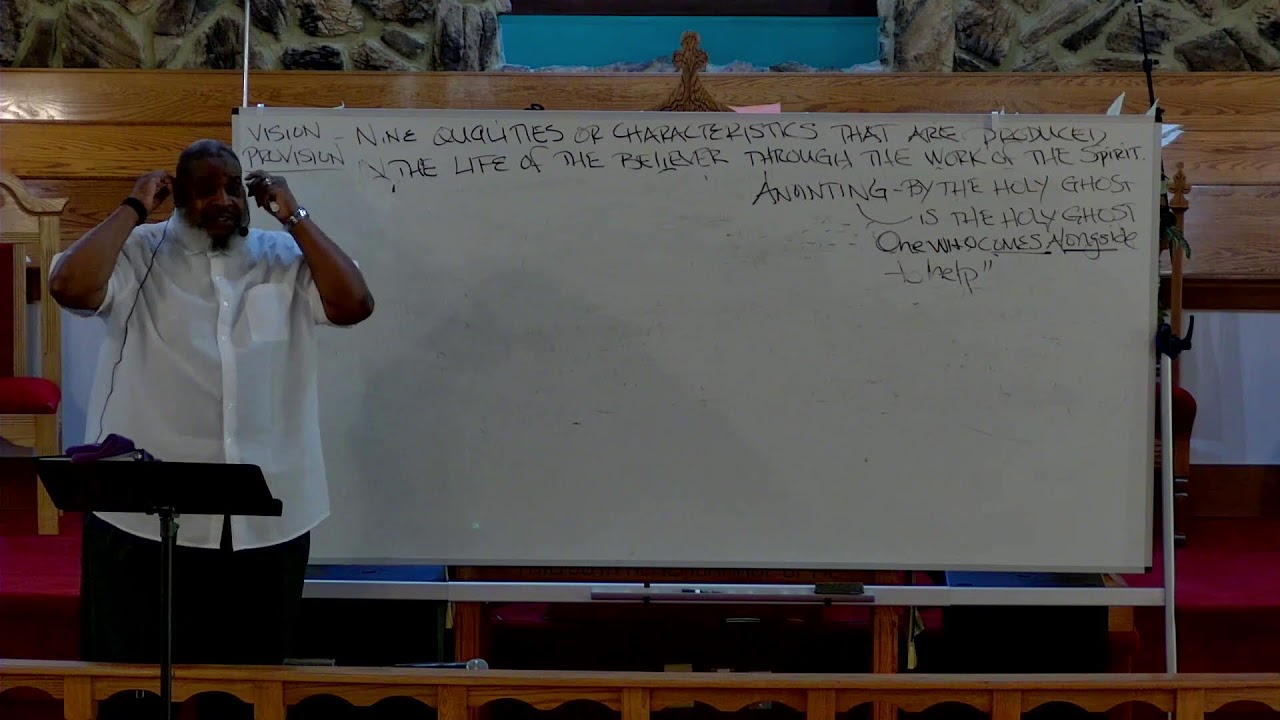 VISION - NINE QUALITIES OR CHARACTERISTICS THAT ARE PRODUCED
PROVISION IN THE LIFE OF THE BELIEVER THROUGH THE WORK OF THE SPIRIT.
ANOINTING - BY THE HOLY GHOST
IS THE HOLY GHOST
One WHO COMES Alongside
to help"